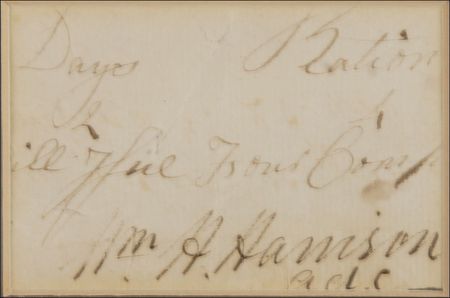 Days Ration
ill Issue Four Comp
Wm H. Harrison
a d. c